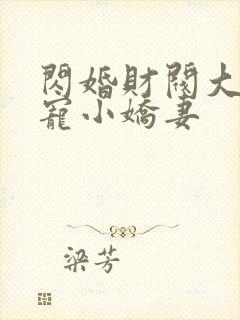 閃婚財閥大
寵小嬌妻
梁芳